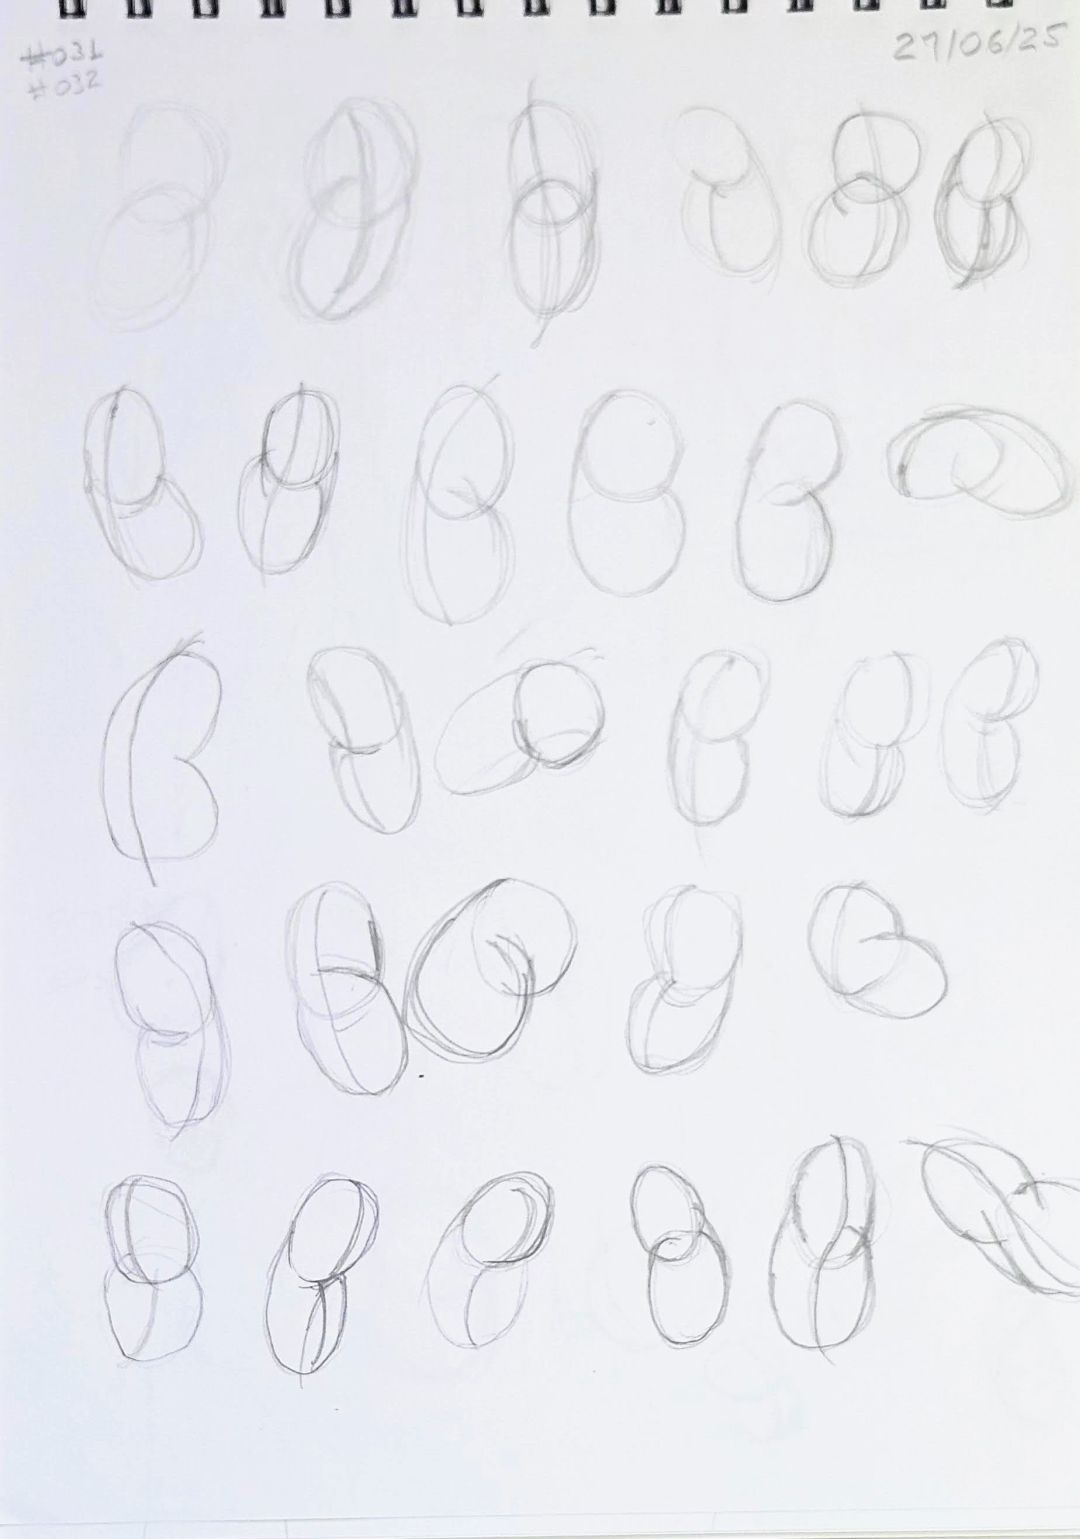 #031
#032
27/06/25